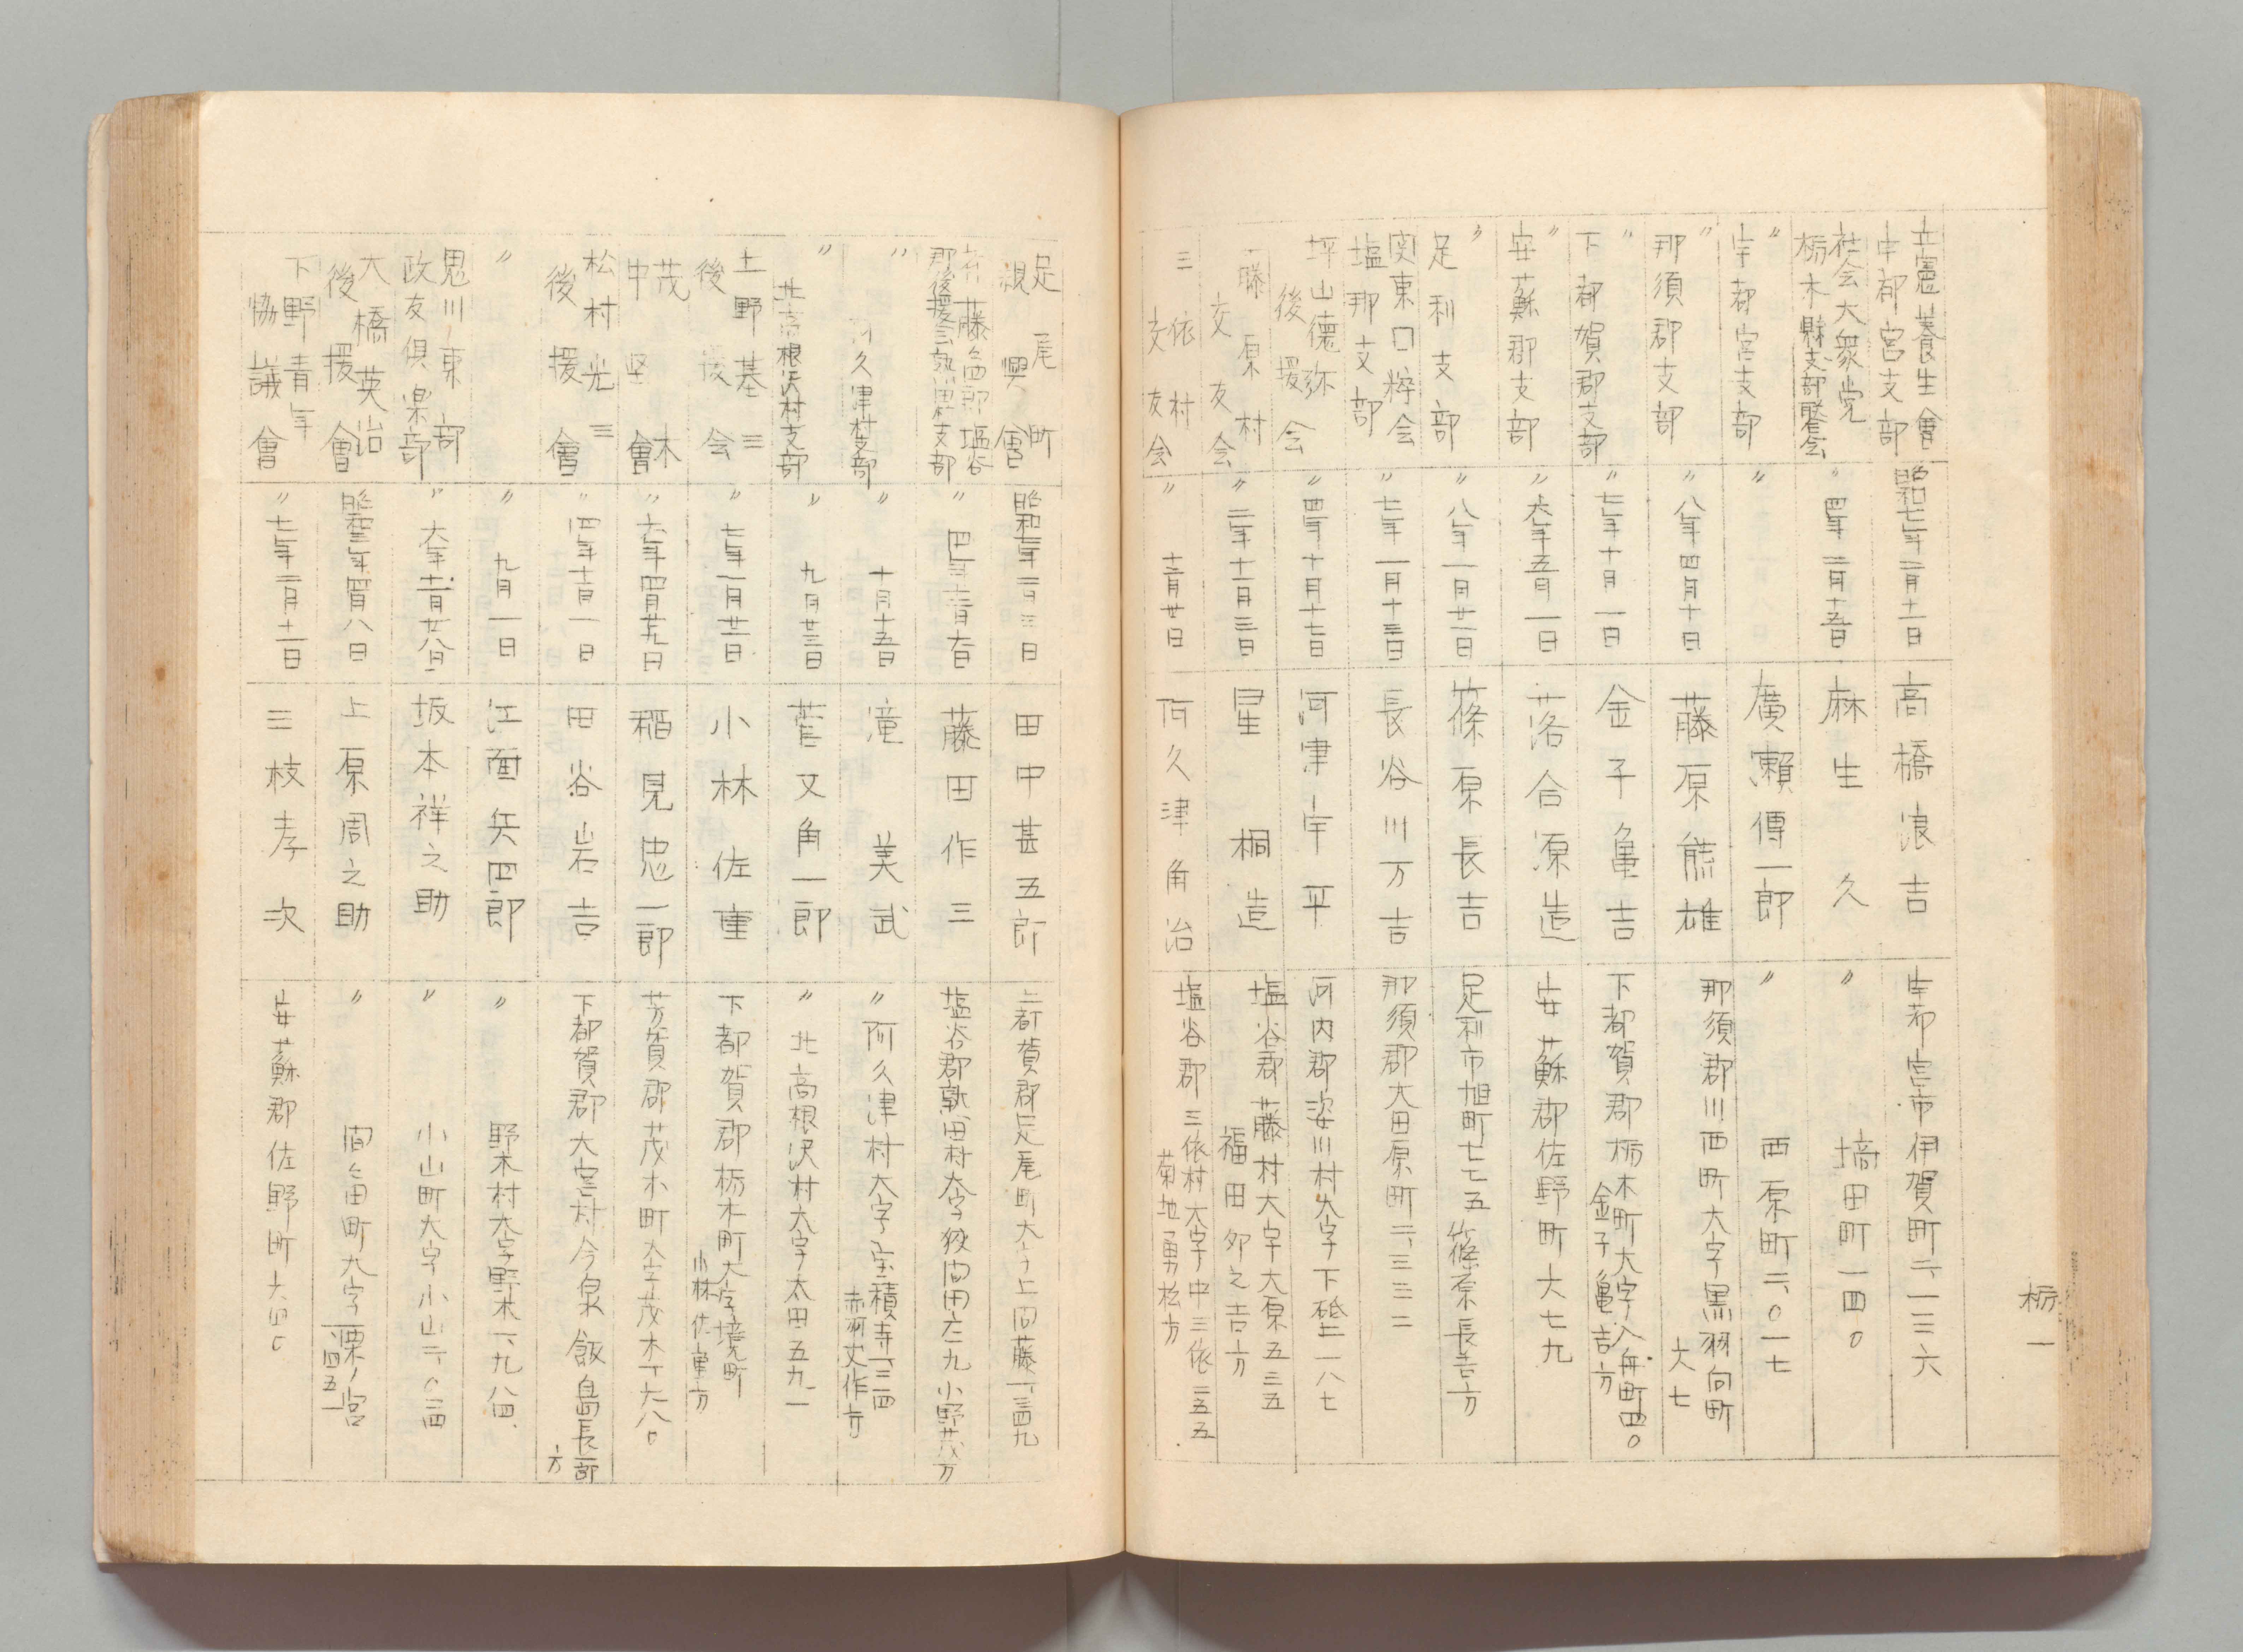 栃一
立憲養生會
中都宮支部
昭和七年二月十一日
高橋浪吉
宇都宮市伊賀町二、一三六
社会大衆党
栃木縣支部聯合会
〃四年二月十五日
麻生久
〃塙田町一四〇
〃
宇都宮支部
〃
廣瀬傳一郎
〃西原町二、〇一七
〃
那須郡支部
〃八年四月十日
藤原熊雄
那須郡川西町大字黒羽向町
六七
〃
下都賀郡支部
〃七年十月一日
金子亀吉
下都賀郡栃木町大字入舟町四〇
金子亀吉方
〃
安蘇郡支部
〃六年五月一日
落合源造
安蘇郡佐野町六七九
〃
足利支部
〃八年一月廿一日
篠原長吉
足利市旭町七七五
篠原長吉方
関東口粹会
塩那支部
〃七年一月十三日
長谷川万吉
那須郡大田原町二、三三二
坪山德弥
後援会
〃四年十月十七日
河津宇平
河内郡姿川村大字下砥上一八七
藤原村
支友会
〃二年十一月三日
星桐造
塩谷郡藤村大字大原五三五
福田卯之吉方
三依村
支友会
〃十二月廿日
阿久津角治
塩谷郡三依村大字中三依三五五
菊地勇松方
足尾町
親興會
昭和七年二月三日
田中甚五郎
上都賀郡足尾町大字上間藤一、三四九
郡後援会熟田村支部
藤田作三
塩谷郡熟田村大字狹間田六二九
小野茂方
〃
阿久津村支部
〃十月十五日
滝美武
〃阿久津村大字宝積寺一、三四
赤羽丈作方
〃
北高根沢村支部
〃九月廿三日
菅又角一郎
〃北高根沢村大字太田五九一
土野基三
後援会
〃七年一月廿一日
小林佐重
下都賀郡栃木町大字境町
小林佐重方
茂木
中堅會
〃六年四月廿九日
稲見忠一郎
芳賀郡茂木町大字茂木一、六八〇
松村光三
後援會
〃四年十一月一日
田谷岩吉
下都賀郡大宮村今泉飯島長一郎
方
〃
〃九月一日
江面兵四郎
〃野木村大字野木一、九八四
思川東部
政友俱楽部
〃六年十一月廿八日
坂本祥之助
〃小山町大字小山二、〇三四
大橋英治
後援會
昭和三年四月八日
上原周之助
〃間々田町大字粟ノ宮
一四五一
下野青年
協議會
〃七年二月十一日
三枝孝次
安蘇郡佐野町六四〇